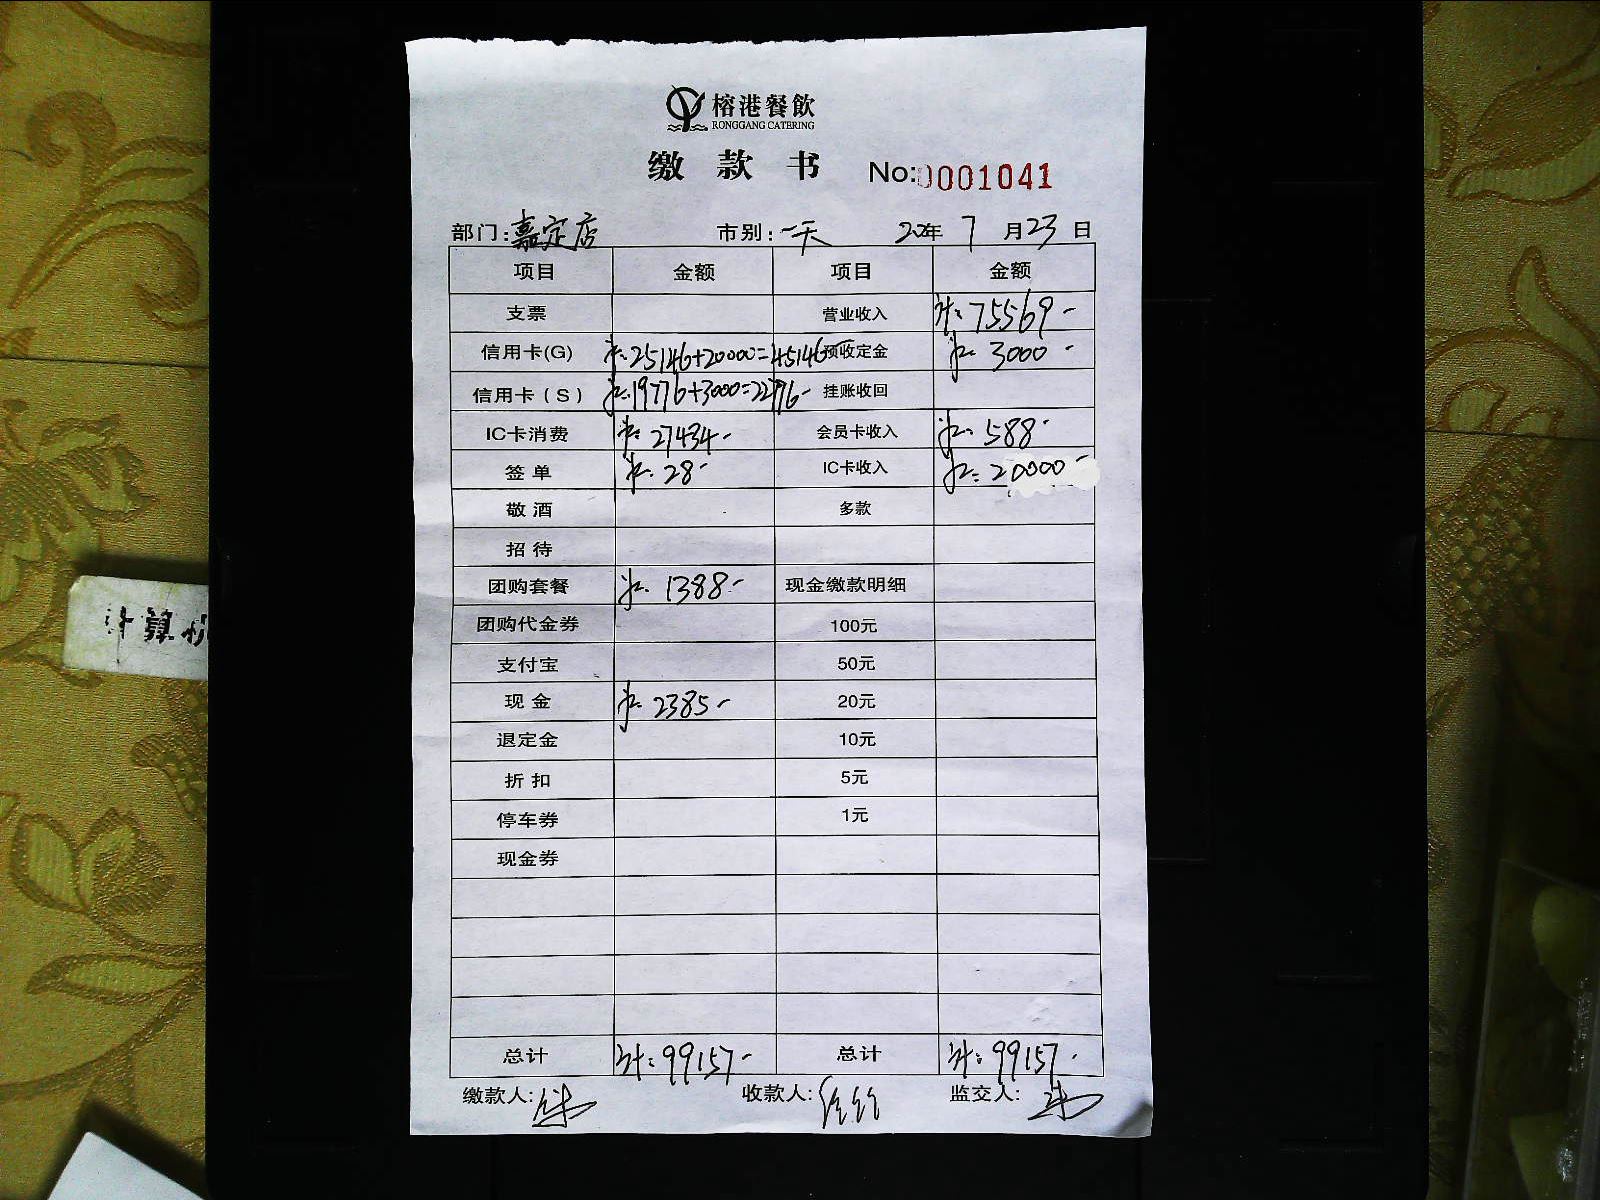 榕港餐飲
RONGGANG CATERING
缴款书 No:0001041
部门:嘉定店 市别:一天 2012年7月23日
项目 金额 项目 金额
支票 营业收入 计:75569-
信用卡(G) 25146+20000=45146 预收定金 3000-
信用卡(S) 19776+3000=22776- 挂账收回
IC卡消费 27434- 会员卡收入 588-
签单 28- IC卡收入 20000-
敬酒 多款
招待
团购套餐 1388- 现金缴款明细
团购代金券 100元
支付宝 50元
现金 2385- 20元
退定金 10元
折扣 5元
停车券 1元
现金券
总计 计:99157- 总计 计:99157-
缴款人: 收款人: 监交人:
计算机